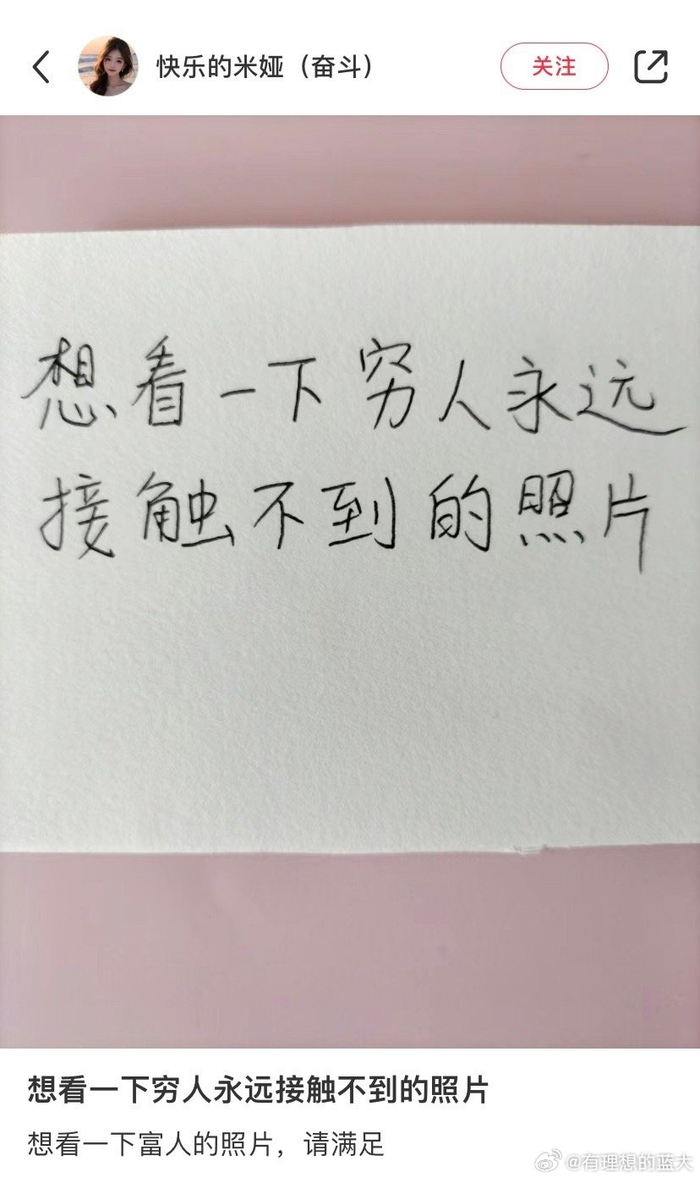 快乐的米娅（奋斗）
关注
想看一下穷人永远
接触不到的照片
想看一下穷人永远接触不到的照片
想看一下富人的照片，请满足
@有理想的蓝夫